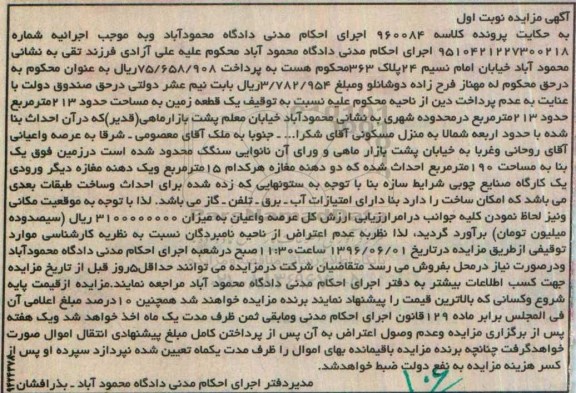 آگهی مزایده نوبت اول
به حکایت پرونده کلاسه ۹۶۰۰۸۴ اجرای احکام مدنی دادگاه محمودآباد وبه موجب اجرائیه شماره
۹۵۱۰۴۲۱۲۲۷۳۰۰۲۱۸ اجرای احکام مدنی دادگاه محمود آباد محکوم علیه علی آزادی فرزند تقی به نشانی
محمود آباد خیابان امام نسیم ۲۴پلاک ۳۶۳محکوم هست به پرداخت ۷۵/۶۵۸/۹۰۸ریال به عنوان محکوم به
درحق محکوم له مهناز فرح زاده دوشانلو ومبلغ ۳/۷۸۲/۹۵۴ریال بابت نیم عشر دولتی درحق صندوق دولت با
عنایت به عدم پرداخت دین از ناحیه محکوم علیه نسبت به توقیف یک قطعه زمین به مساحت حدود ۲۱۳مترمربع
حدود ۲۱۳مترمربع درمحدوده شهری به نشانی محمودآباد خیابان معلم پشت بازارماهی(قدیر)که درآن احداث بنا
شده با حدود اربعه شمالا به منزل مسکونی آقای شکرا... ـ جنوبا به ملک آقای معصومی ـ شرقا به عرصه واعیانی
آقای روحانی وغربا به خیابان پشت بازار ماهی و ورای آن نانوایی سنگک محدود شده است درزمین فوق یک
بنا به مساحت ۱۹۰مترمربع احداث شده که دو دهنه مغازه هرکدام ۱۵مترمربع ویک دهنه مغازه دیگر ورودی
یک کارگاه صنایع چوبی شرایط سازه بنا با توجه به ستونهایی که زده شده برای احداث وساخت طبقات بعدی
می باشد که امکان ساخت را دارد بنا دارای امتیازات آب ـ برق ـ تلفن ـ گاز می باشد. لذا با توجه به موقعیت مکانی
ونیز لحاظ نمودن کلیه جوانب درامرارزیابی ارزش کل عرصه واعیان به میزان ۳۱۰۰۰۰۰۰۰۰ ریال (سیصدوده
میلیون تومان) برآورد گردید، لذا نظربه عدم اعتراض از ناحیه نامبردگان نسبت به نظریه کارشناسی موارد
توقیفی ازطریق مزایده درتاریخ ۱۳۹۶/۰۶/۰۱ ساعت۱۱:۳۰صبح درشعبه اجرای احکام مدنی دادگاه محمودآباد
ودرصورت نیاز درمحل بفروش می رسد متقاضیان شرکت درمزایده می توانند حداقل۵روز قبل از تاریخ مزایده
جهت کسب اطلاعات بیشتر به دفتر اجرای احکام مدنی دادگاه محمود آباد مراجعه نمایند.مزایده ازقیمت پایه
شروع وکسانی که بالاترین قیمت را پیشنهاد نمایند برنده مزایده خواهند شد همچنین ۱۰درصد مبلغ اعلامی آن
فی المجلس برابر ماده ۱۲۹قانون اجرای احکام مدنی ومابقی ثمن ظرف مدت یک ماه اخذ خواهد شد ویک هفته
پس از برگزاری مزایده وعدم وصول اعتراض به آن پس از پرداختن کامل مبلغ پیشنهادی انتقال اموال صورت
خواهدگرفت چنانچه برنده مزایده باقیمانده بهای اموال را ظرف مدت یکماه تعیین شده نپردازد سپرده او پس از
کسر هزینه مزایده به نفع دولت ضبط خواهدشد.
مدیردفتر اجرای احکام مدنی دادگاه محمود آباد ـ بذرافشان
۱۰۶